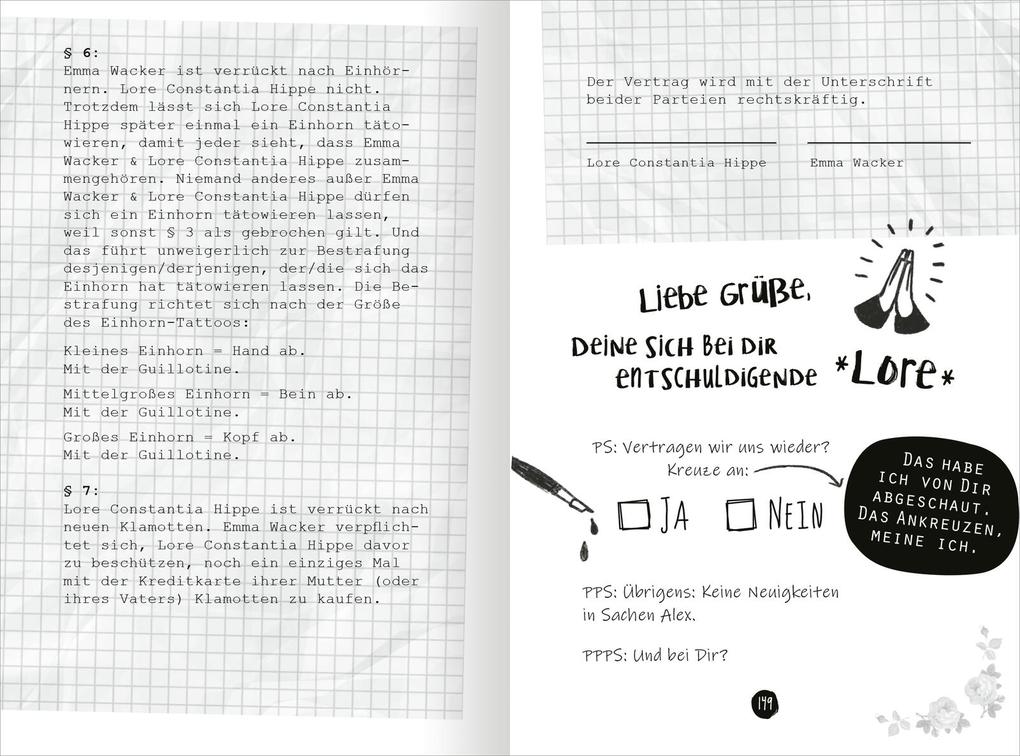 § 6:
Emma Wacker ist verrückt nach Einhör-
nern. Lore Constantia Hippe nicht.
Trotzdem lässt sich Lore Constantia
Hippe später einmal ein Einhorn täto-
wieren, damit jeder sieht, dass Emma
Wacker & Lore Constantia Hippe zusam-
mengehören. Niemand anderes außer Emma
Wacker & Lore Constantia Hippe dürfen
sich ein Einhorn tätowieren lassen,
weil sonst § 3 als gebrochen gilt. Und
das führt unweigerlich zur Bestrafung
desjenigen/derjenigen, der/die sich das
Einhorn hat tätowieren lassen. Die Be-
strafung richtet sich nach der Größe
des Einhorn-Tattoos:
Kleines Einhorn = Hand ab.
Mit der Guillotine.
Mittelgroßes Einhorn = Bein ab.
Mit der Guillotine.
Großes Einhorn = Kopf ab.
Mit der Guillotine.
§ 7:
Lore Constantia Hippe ist verrückt nach
neuen Klamotten. Emma Wacker verpflich-
tet sich, Lore Constantia Hippe davor
zu beschützen, noch ein einziges Mal
mit der Kreditkarte ihrer Mutter (oder
ihres Vaters) Klamotten zu kaufen.
Der Vertrag wird mit der Unterschrift
beider Parteien rechtskräftig.
Lore Constantia Hippe Emma Wacker
Liebe Grüße,
Deine sich bei Dir
entschuldigende *Lore*
PS: Vertragen wir uns wieder?
Kreuze an:
JA NEIN
Das habe
ich von Dir
abgeschaut.
Das Ankreuzen,
meine ich.
PPS: Übrigens: Keine Neuigkeiten
in Sachen Alex.
PPPS: Und bei Dir?
149